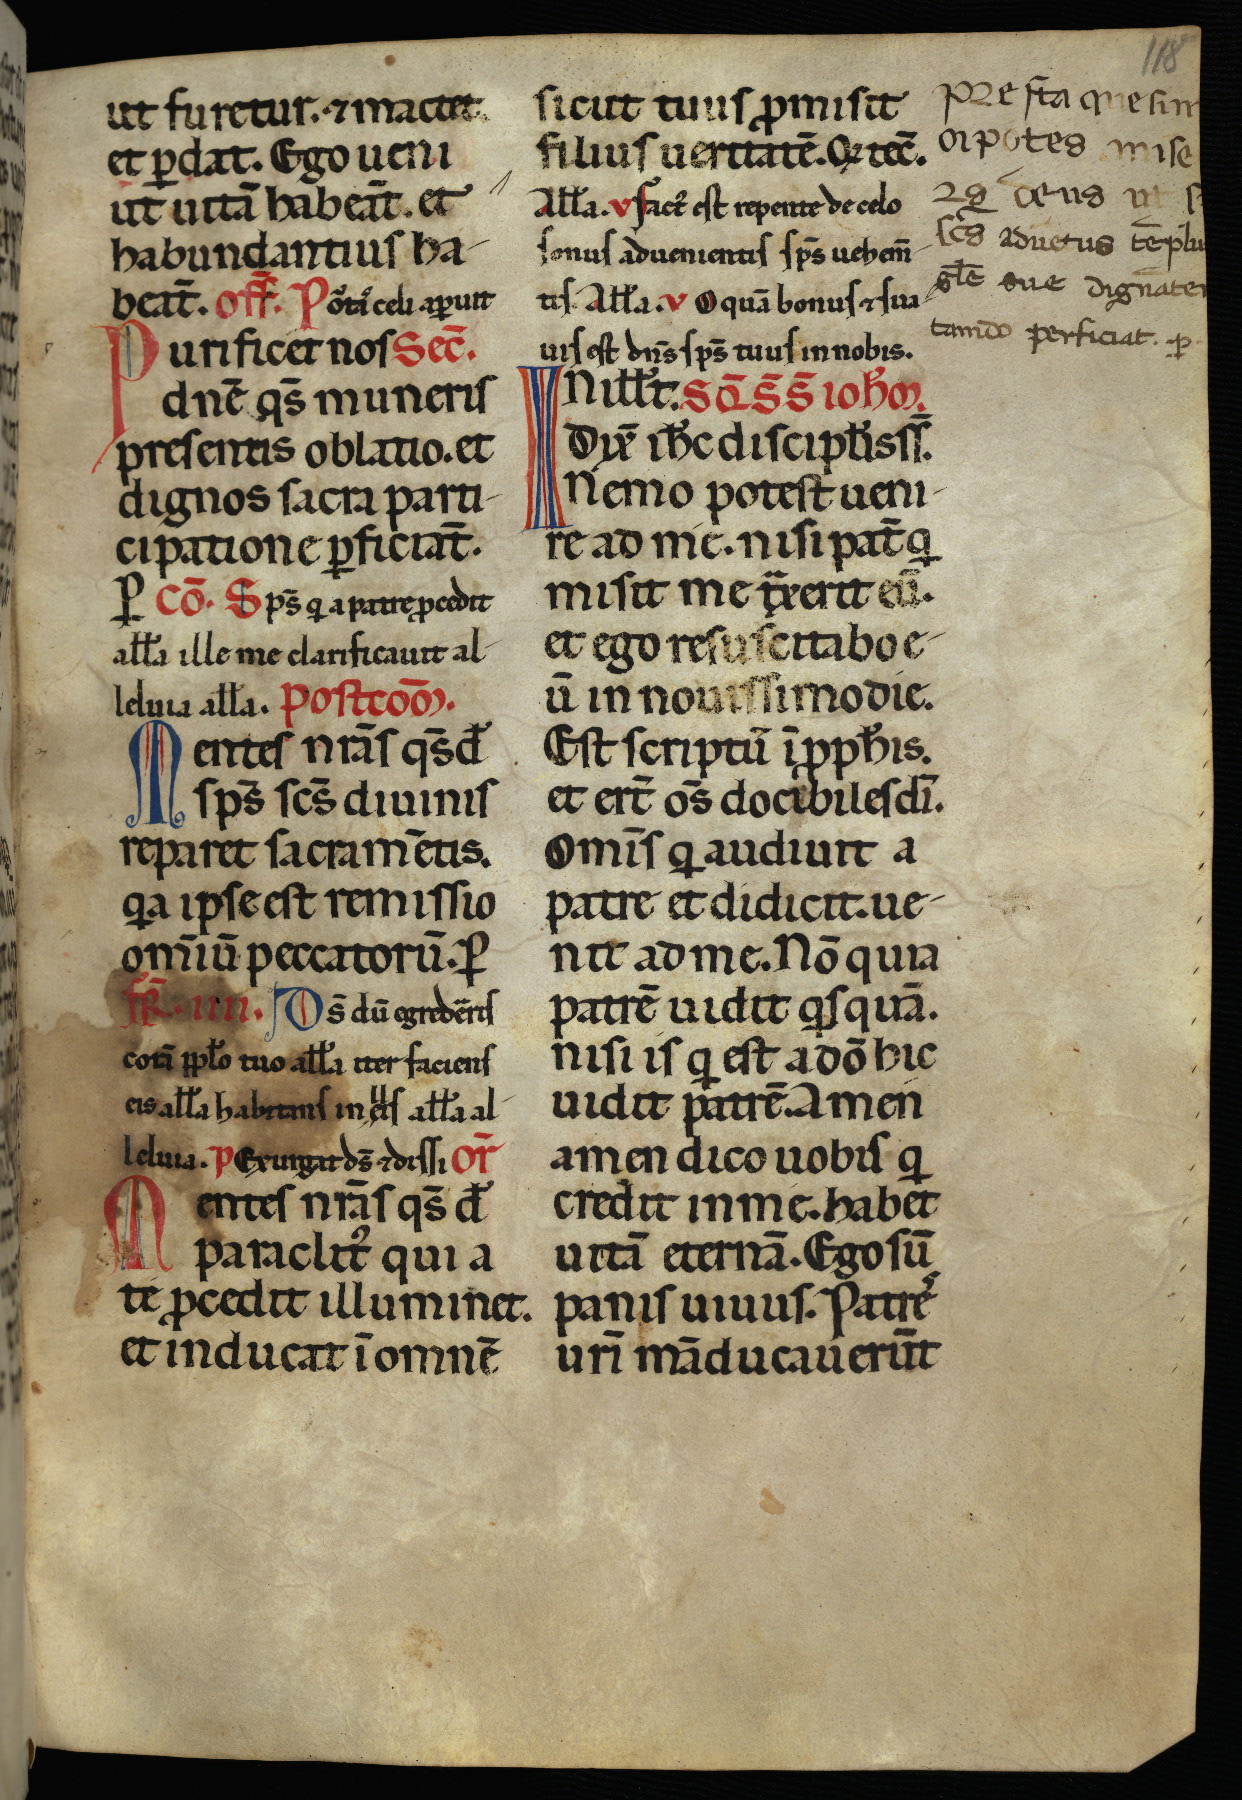 ut furetur. ⁊ mactet
et ꝑdat. Ego ueni
ut uitā habeāt. et
habundantius ha-
beāt. Off̄. Portā celi aꝑuit
Purificet nos Sec̄.
dn̄e q̄s muneris
presentis oblatio. et
dignos sacra parti-
cipatione ꝑficiat̄.
ꝑ Cō. Sp̄s qi a patre ꝓcedit
all̄a ille me clarificauit al-
leluia all̄a. Postcōm̄.
Mentes nr̄as q̄s d̄
sp̄s sc̄s diuinis
reparet sacram̄etis.
qia ipse est remissio
om̄iū peccatorū. ꝑ
fr̄. iiii. Ds̄ dū egredēris
corā pp̄lo tuo all̄a iter faciens
eis all̄a habitans in eis all̄a al-
leluia. p Exurgat ds̄ ⁊ dissi or̄
Mentes nr̄as q̄s d̄
paraclitꝰ qui a
te ꝓcedit illuminet.
et inducat ī omnē
sicut tuus ꝓmisit
filius ueritatē. Qi tec̄.
All̄a. v Factꝰ est repente de celo
sonus aduenientis sp̄s uehem̄-
tis. All̄a. v O quā bonus ⁊ sua-
uis est dn̄s sp̄s tuus in nobis.
In ill̄ t̄. Sq̄ s̄ s̄ ioh̄m.
Dix̄ ih̄c discipl̄is s̄s.
Nemo potest ueni-
re ad me. nisi pat̄ qi
misit me t̄xerit eū.
et ego resuscitabo e-
ū in nouissimo die.
Est scriptū ī ꝓph̄is.
et ert̄ om̄s docibiles dī.
Omīs qi audiuit a
patre et didicit. ue-
nit ad me. Nō quia
patrē uidit qisquā.
nisi is qi est a dō hic
uidit patrē. Amen
amen dico uobis qi
credit in me. habet
uitā eternā. Ego sū
panis uiuus. Patres
uri māducauerūt
118
Presta quesum
oīpotes mise
deus ut s
sc̄s aduetus tēplu
gl̄e sue dignāter
tando perficiat. ꝑ